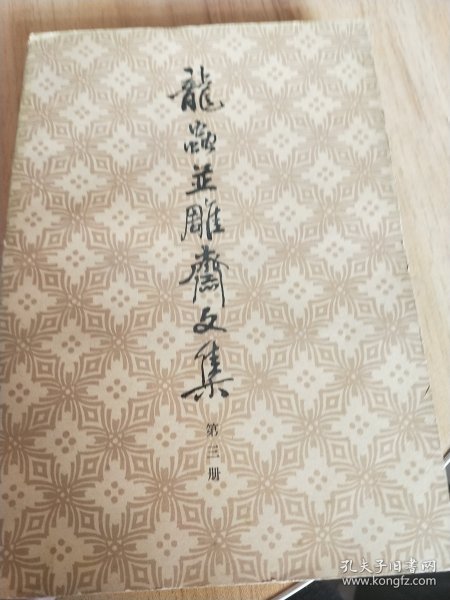 龍蟲並雕齋文集
第三册
孔夫子旧书网
www.kongfz.com